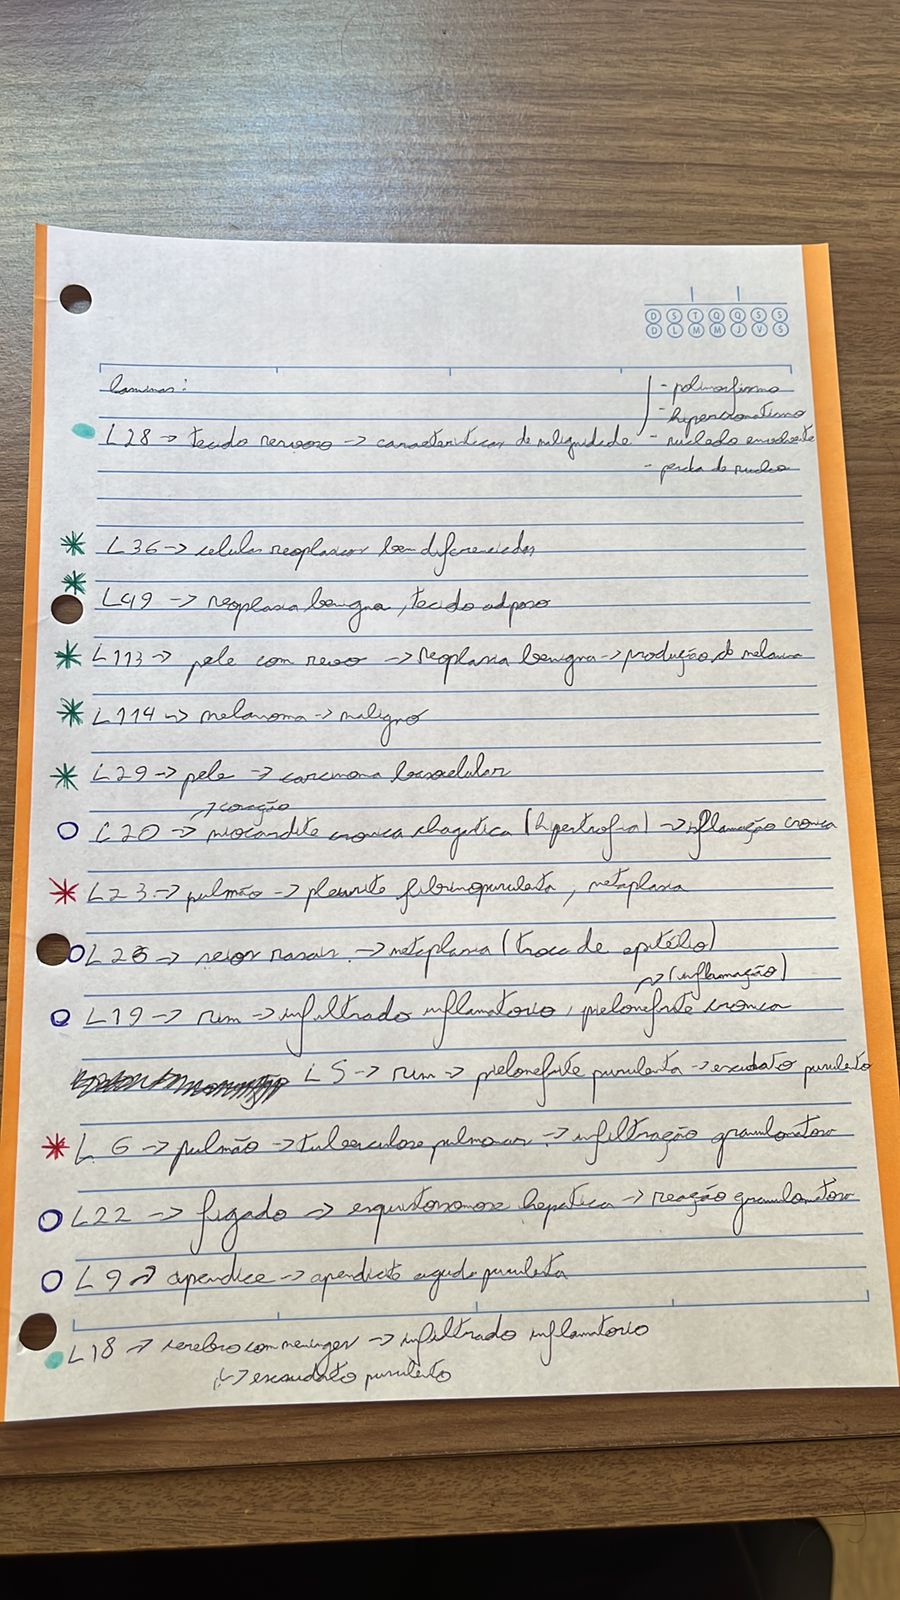 D S T Q Q S S
D L M M J V S
laminas:
- polimorfismo
- hipercromatismo
L28 -> tecido nervoso -> caracteristicas de malignidade - nucleolo
- perda de nucleo
L36 -> celulas neoplasicas bem diferenciadas
L49 -> neoplasia benigna, tecido adiposo
L113 -> pele com nevo -> neoplasia benigna -> produção de melanina
L114 -> melanoma -> maligno
L29 -> pele -> carcinoma basocelular
-> coração
L20 -> miocardite cronica chagatica (hipertrofia) -> inflamação cronica
L23 -> pulmão -> pleurite fibrinopurulenta, metaplasia
L26 -> seios nasais -> metaplasia (troca de epitélio)
-> (inflamação)
L19 -> rim -> infiltrado inflamatorio, pielonefrite cronica
L5 -> rim -> pielonefrite purulenta -> exsudato purulento
L 6 -> pulmão -> tuberculose pulmonar -> infiltração granulomatosa
L22 -> figado -> esquistossomose hepatica -> reação granulomatosa
L9 -> apendice -> apendicite aguda purulenta
L18 -> cerebro com meninges -> infiltrado inflamatorio
-> exsudato purulento